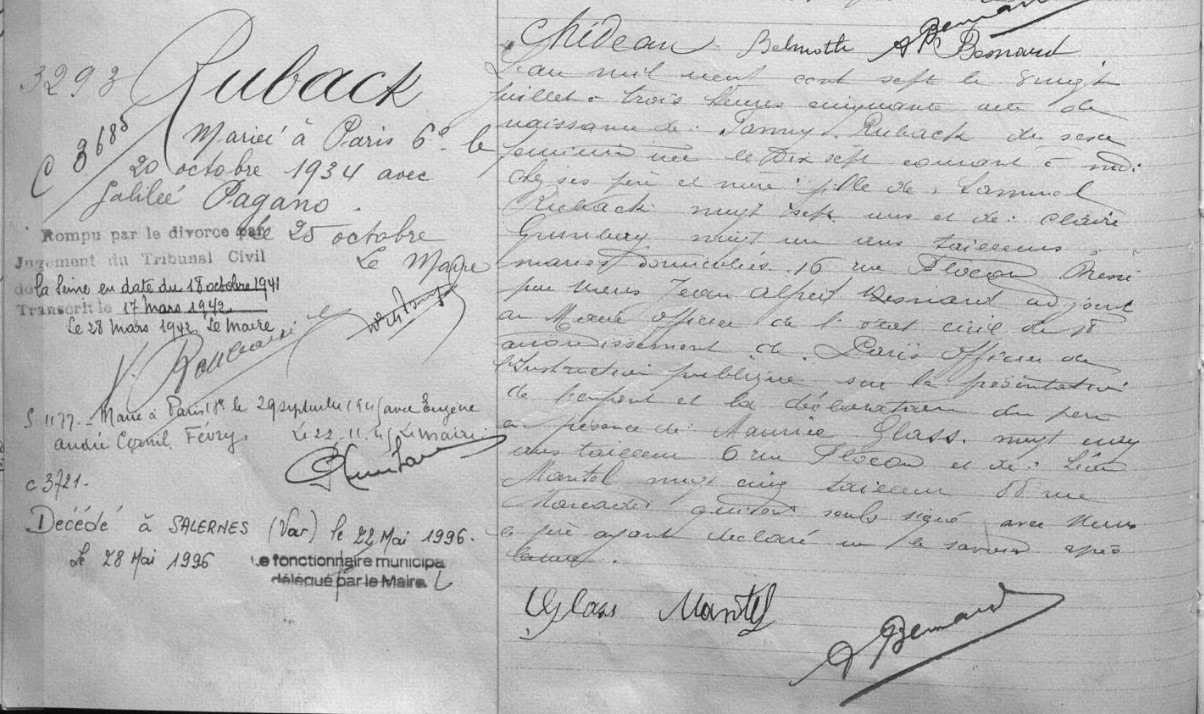 3293 Ruback
C 3685
Marié à Paris 6e le
20 octobre 1934 avec
Galiléé Pagano.
le 25 octobre
Le Maire
Rompu par le divorce par
Jugement du Tribunal Civil
de la Seine en date du 18 octobre 1941
Transcrit le 17 mars 1942
Le 28 mars 1942 Le Maire
S 1177 - Marié à Paris 18e le 29 septembre 1945 avec Eugène
andré Févry. Le 22.11.45 Le Maire.
C 3721-
Decédé à SALERNES (Var) le 22 Mai 1996.
Le 28 Mai 1996
Le fonctionnaire municipa
délégué par le Maire
Chideau Belmoth A Besnard Besnard
L'an mil neuf cent sept le vingt
juillet à trois heures cinquante acte de
naissance de: Fanny. Ruback du sexe
féminin née le Dix sept courant à midi
chez ses père et mère: fille de: Samuel
Ruback vingt sept ans et de: Claire
Grunberg vingt un ans tailleurs
mariés domiciliés. 16 rue Flocon Dressé
par nous Jean Albert Besnard adjoint
au Maire officier de l'état civil du 18
arrondissement de Paris Officier de
l'Instruction publique sur la présentation
de l'enfant et la déclaration du père
en présence de: Maurice Glass. vingt cinq
ans tailleur 6 rue Flocon et de: Léon
Mantel vingt cinq tailleur 88 rue
Marcadet qui ont seuls signé avec Nous
le père ayant déclaré ne le savoir après
lecture.
Glass Mantel
A Besnard